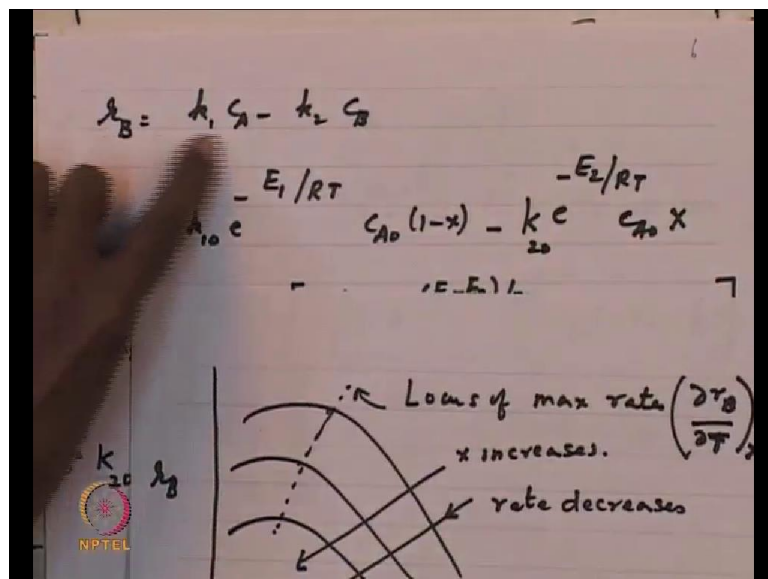 6
r_B = k_1 C_A - k_2 C_B
k_10 e^{-E_1/RT} C_A0 (1-x) - k_20 e^{-E_2/RT} C_A0 x
Locus of max rates (∂r_B/∂T)_x
x increases.
k_20 r_B
rate decreases
NPTEL